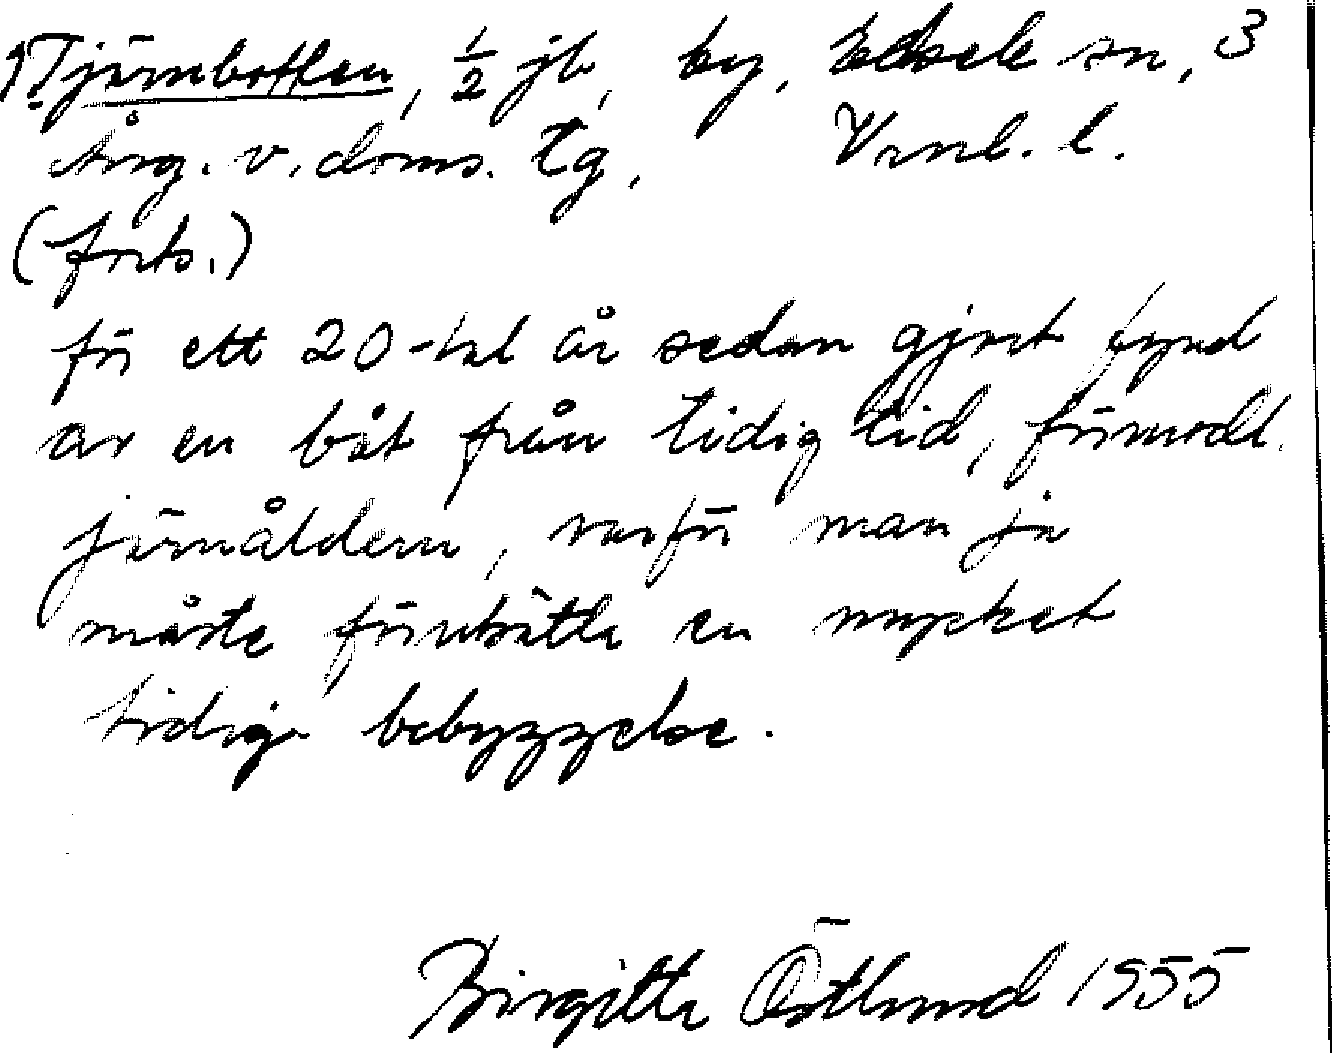 Tjärnbotten, ½ jb, by, Edsele sn, 3
Ång. v. doms. tg, Vnrl. l.
(forts.)
för ett 20-tal år sedan gjort fynd
av en båt från tidig tid, förmodl.
järnåldern, varför man ju
måste förutsätta en mycket
tidig bebyggelse.
Birgitta Östlund 1955